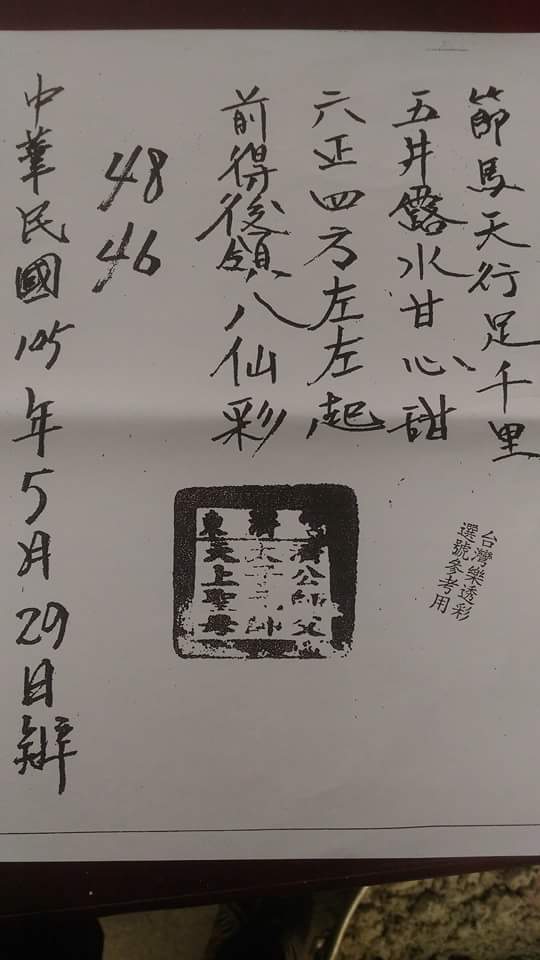 節馬天行足千里
五井露水甘心甜
六正四方左左起
前得後領八仙彩
48
46
中華民國105年5月29日辦
台灣樂透彩
選號參考用
濟公師父
太子元帥
天上聖母